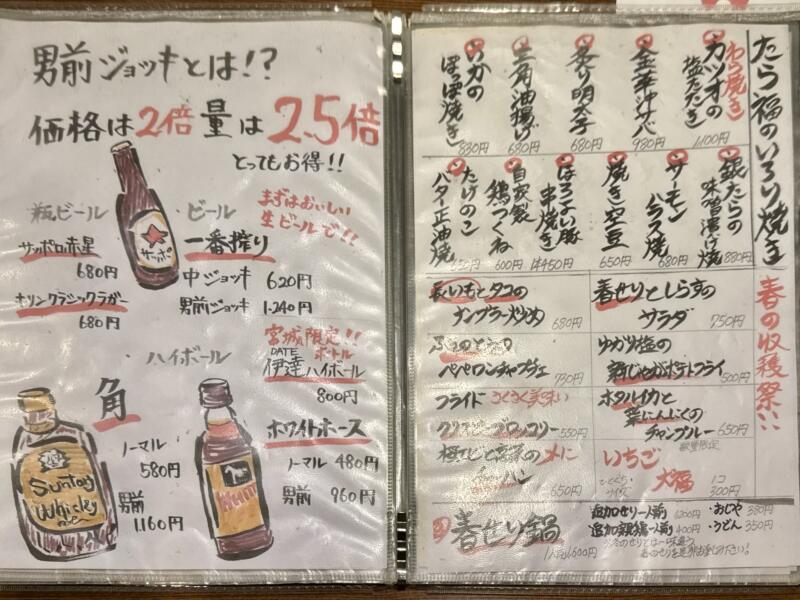 男前ジョッキとは!?
価格は2倍量は2.5倍
とってもお得!!
瓶ビール
サッポロ赤星
680円
キリンクラシックラガー
680円
サッポロ
ビール
まずはおいしい
生ビールで!!
一番搾り
中ジョッキ 620円
男前ジョッキ 1.240円
ハイボール
角
ノーマル
580円
男前
1.160円
Suntory
Whisky
宮城限定!!
ボトル
DATE
伊達ハイボール
800円
ホワイトホース
ノーマル 480円
男前 960円
たら福のいろり焼き
わら焼き
カツオの
塩たたき
1.100円
金華サバ
980円
炙り明太子
680円
三角油揚げ
680円
いかの
ぽっぽ焼き
830円
銀たらの
味噌漬け焼
880円
サーモン
ハラス焼
680円
焼き空豆
650円
ほろよい豚
串焼き
1本450円
自家製
鶏つくね
600円
たけのこ
バター正油焼
春の収穫祭!!
長いもとタコの
ナンプラー炒め
680円
春せりとしらすの
サラダ
750円
ペペロンチャプチェ
730円
ゆかり塩の
新じゃがポテトフライ
500円
フライド さくさく美味い
クリスピーブロッコリー
550円
ホタルイカと
葉にんにくの
チャンプルー
650円
数量限定
チーハン
650円
いちご
大福
1コ
300円
春せり鍋
1人前1600円
追加せり一人前
追加親鶏一人前 400円
・おじや 350円
・うどん 350円